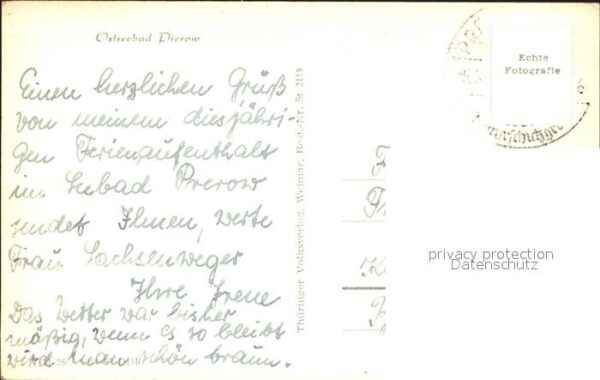 Ostseebad Prerow
Einen herzlichen Gruß
von meinem diesjähri-
gen Ferienaufenthalt
im Seebad Prerow
sendet Ihnen, werte
Frau Sachsenweger
Ihre Irene
Das Wetter war bisher
mäßig, wenn es so bleibt
wird man schön braun.
Thüringer Volksverlag, Weimar, Best.-Nr. St 2115
Echte
Fotografie
privacy protection
Datenschutz